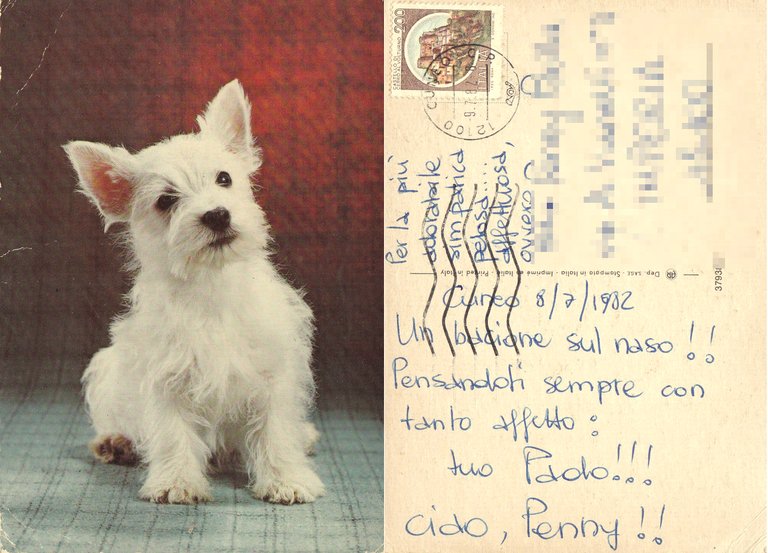 200
CUNEO
12100
Per la più
adorabile
simpatica
pelosa....
affettuosa,
ovvero
Dep. SAGE - Stampato in Italia - Imprimé en Italie - Printed in Italy
3793
Cuneo 8/7/1982
Un bacione sul naso!!
Pensandoti sempre con
tanto affetto:
tuo Paolo!!!
ciao, Penny!!